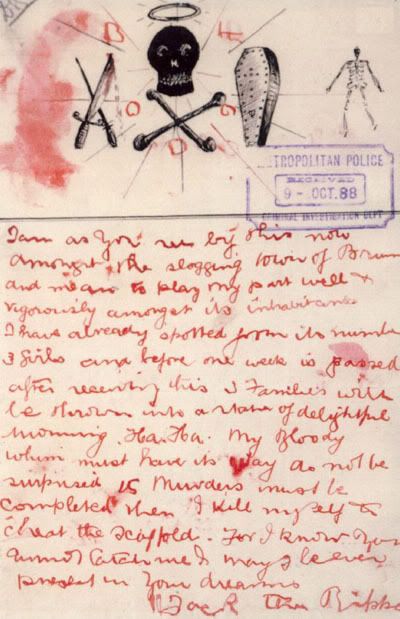 TROPOLITAN POLICE
RECEIVED
9 - OCT. 88
CRIMINAL INVESTIGATION DEPT
I am as you see by this now
amongst the slogging town of Brum
and mean to play my part well &
vigorously amongst its inhabitants
I have already spotted from its numbe
3 girls and before one week is passed
after receiving this 3 Families will
be thrown into a state of delightful
mourning. Ha. Ha. My Bloody
whim must have its way do not be
surprised 15 Murders must be
completed then I kill myself to
cheat the scaffold. For I know you
cannot catch me & may I be ever
present in your dreams
Jack the Rippe